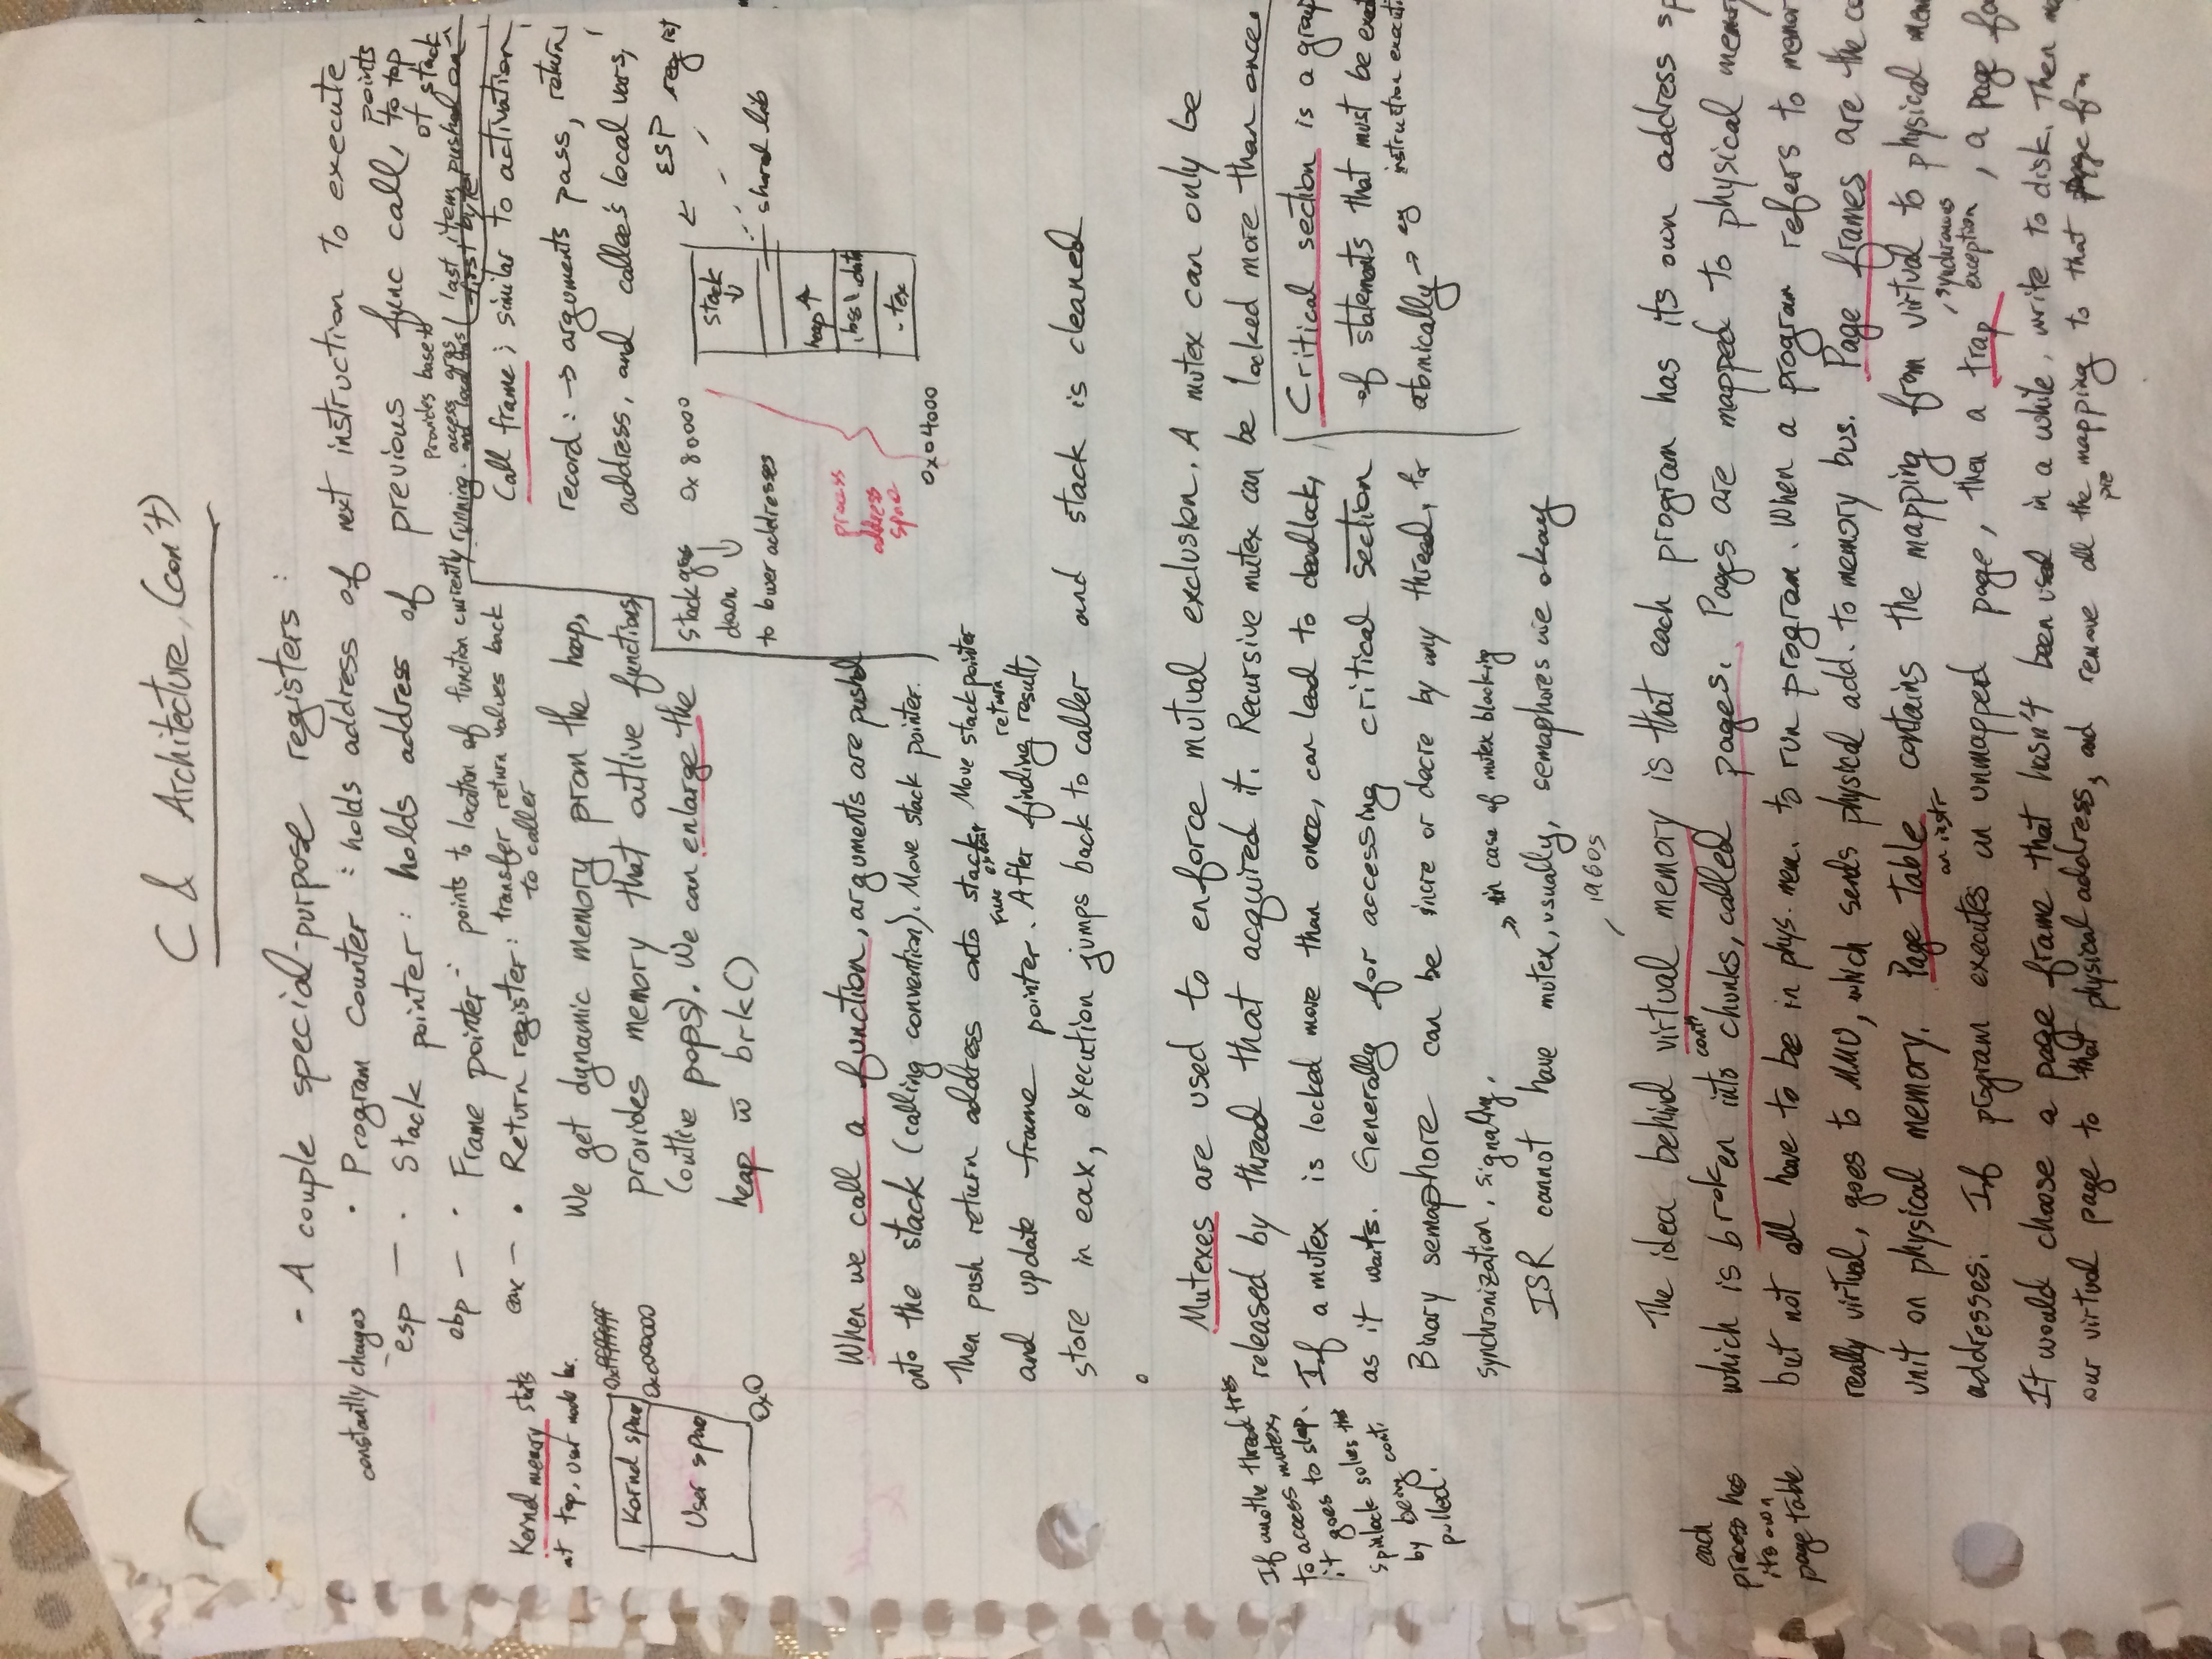 C & Architecture (con't)
- A couple special-purpose registers :
constantly changes
• Program Counter : holds address of next instruction to execute
esp — • Stack pointer : holds address of previous func call, points to top of stack
ebp — • Frame pointer - points to location of function currently running. provides base to access args and local vars
last item pushed on
first byte
eax — • Return register : transfer return values back to caller
Kernel memory starts
at top, user mode
Kernel space
User space
0xffffffff
0xc000000
0x0
We get dynamic memory prom the heap,
provides memory that outlive functions
(outlive pops). We can enlarge the
heap w brk()
Call frame ; similar to activation
record : → arguments pass, return
address, and callee's local vars,
stack grows
down ↓
to lower addresses
0x80000
ESP regist
stack
↓
shared lib
heap ↑
.bss \ .data
.tex
process
address
space
0x04000
When we call a function, arguments are pushed
onto the stack (calling convention). Move stack pointer.
Then push return address onto stack. Move stack pointer
and update frame pointer. Func After finding return result,
store in eax, execution jumps back to caller and stack is cleaned
Mutexes are used to enforce mutual exclusion. A mutex can only be
released by thread that acquired it. Recursive mutex can be locked more than once.
If a mutex is locked more than once, can lead to deadlock,
as it waits. Generally for accessing critical section
Binary semaphore can be incre or decre by any thread, for
synchronization, signaling.
If anothe thread tries
to access mutex,
it goes to slep.
Spinlock solves this
by being cont.
pulled.
Critical section is a group
of statements that must be
atomically → eg instruction
→ in case of mutex blocking
ISR cannot have mutex, usually, semaphores are okay
1960s
The idea behind virtual memory is that each program has its own address sp
which is broken into cont chunks, called pages. Pages are mapped to physical memory
but not all have to be in phys. mem. to run program. When a program refers to memor
really virtual, goes to MMU, which sends physical add. to memory bus. Page frames are the co
unit on physical memory. Page Table contains the mapping from virtual to physical mem
addresses. If program executes an instr an unmapped page, then a trap, synchronous exception, a page fa
It would choose a page frame that hasn't been used in a while, write to disk. Then ma
our virtual page to that physical address, and remove all the pre mapping to that page fra
each
process has
its own
page table